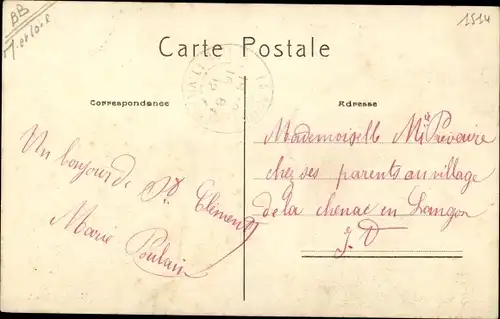 BB
1514
Carte Postale
Correspondance
Adresse
Un bonjour de St Clément
Marie Poulain
Mademoiselle Mia Prévaire
chez ses parents au village
de la chenac en Langon
J. D